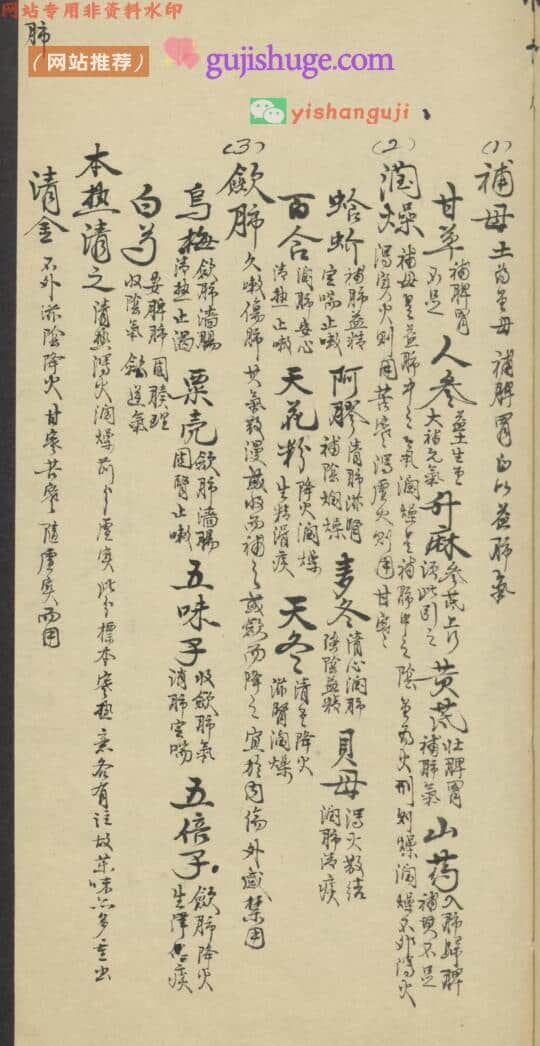 网站专用非资料水印
肺
（网站推荐）
gujishuge.com
yishanguji
(1) 補母 土為金母 補脾胃即以益肺氣
甘草 補脾胃不足 人參 益土生金大補元氣 升麻 參芪上行須此引之 黃芪 壯脾胃補肺氣 山药 入肺歸脾補其不足
(2) 潤燥 補母是益肺中之氣潤燥是補肺中之陰金為火刑則燥潤燥不外瀉火
瀉實火則用苦寒瀉虛火則用甘寒
蛤蚧 補肺益精定喘止嗽 阿膠 清肺滋腎補陰潤燥 麦冬 清心潤肺強陰益精 貝母 瀉火散結潤肺清痰
百合 潤肺安心清热止嗽 天花粉 降火潤燥生精滑痰 天冬 清金降火滋腎潤燥
(3) 歛肺 久嗽傷肺其氣散漫或收而補之或歛而降之宜於内傷外感禁用
烏梅 歛肺濇腸清热止渴 粟壳 歛肺濇腸固腎止嗽 五味子 收歛肺氣消肺定喘 五倍子 歛肺降火生津化痰
白芍 安脾肺固腠理收陰氣歛逆氣
本热清之 清热瀉火潤燥前分虛實此分標本寒热意各有注故藥味不多重出
清金 不外滋陰降火甘寒苦寒隨虛實而用